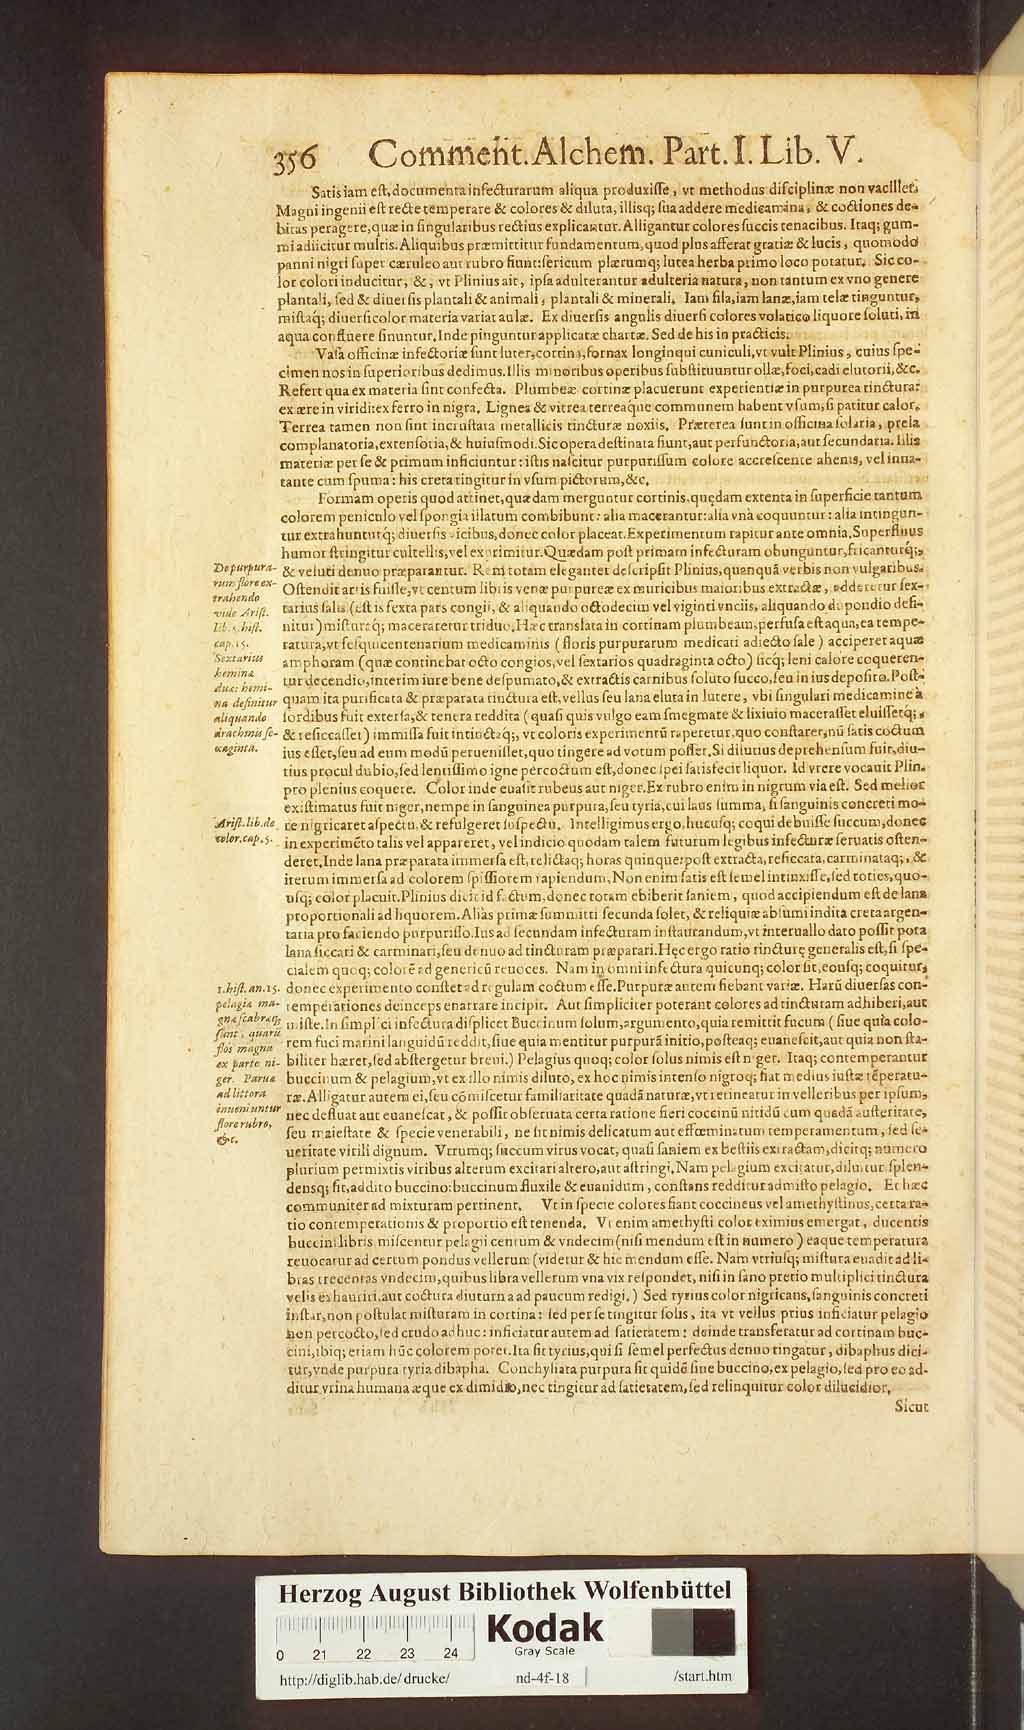 356 Comment. Alchem. Part. I. Lib. V.
Satis iam est, documenta infecturarum aliqua produxisse, vt methodus disciplinæ non vacillet.
Magni ingenii est recte temperare & colores & diluta, illisq; sua addere medicamina, & coctiones de-
bitas peragere, quæ in singularibus rectius explicantur. Alligantur colores succis tenacibus. Itaq; gum-
mi adiicitur multis. Aliquibus præmittitur fundamentum, quod plus afferat gratiæ & lucis, quomodo
panni nigri super cæruleo aut rubro fiunt: sericum plærumq; lutea herba primo loco potatur. Sic co-
lor colori inducitur, &, vt Plinius ait, ipsa adulterantur adulteria natura, non tantum ex vno genere
plantali, sed & diuersis plantali & animali, plantali & minerali. Iam fila, iam lanæ, iam telæ tinguntur,
mistaq; diuersicolor materia variat aulæ. Ex diuersis angulis diuersi colores volatico liquore soluti, in
aqua confluere sinuntur. Inde pinguntur applicatæ chartæ. Sed de his in practicis.
Vasa officinæ infectoriæ sunt luter, cortina, fornax longinqui cuniculi, vt vult Plinius, cuius spe-
cimen nos in superioribus dedimus. Illis minoribus operibus substituuntur ollæ, foci, cadi elutorii, &c.
Refert qua ex materia sint confecta. Plumbeæ cortinæ placuerunt experientiæ in purpurea tinctura:
ex ære in viridi: ex ferro in nigra. Lignea & vitrea terreaque communem habent vsum, si patitur calor.
Terrea tamen non sint incrustata metallicis tincturæ noxiis. Præterea sunt in officina solaria, prela
complanatoria, extensoria, & huiusmodi. Sic opera destinata fiunt, aut perfunctoria, aut secundaria. Illis
materiæ per se & primum inficiuntur: istis nascitur purpurissum colore accrescente ahenis, vel inna-
tante cum spuma: his creta tingitur in vsum pictorum, &c.
Formam operis quod attinet, quædam merguntur cortinis, quędam extenta in superficie tantum
colorem peniculo vel spongia illatum combibunt: alia macerantur: alia vnà coquuntur: alia intingun-
tur extrahunturq; diuersis vicibus, donec color placeat. Experimentum rapitur ante omnia. Superfluus
humor stringitur cultellis, vel exprimitur. Quædam post primam infecturam obunguntur, fricanturq;,
& veluti denuo præparantur. Rem totam eleganter descripsit Plinius, quanquā verbis non vulgaribus.
Ostendit artis fuisse, vt centum libris venæ purpureæ ex muricibus maioribus extractæ, adderetur sex-
tarius salis (est is sexta pars congii, & aliquando octodecim vel viginti vnciis, aliquando dupondio defi-
nitur) misturaq; maceraretur triduo. Hæc translata in cortinam plumbeam, perfusa est aqua, ea tempe-
ratura, vt sesquicentenarium medicaminis (floris purpurarum medicati adiecto sale) acciperet aquæ
amphoram (quæ continebat octo congios, vel sextarios quadraginta octo) sicq; leni calore coqueren-
tur decendio, interim iure bene despumato, & extractis carnibus soluto succo, seu in ius deposito. Post-
quam ita purificata & præparata tinctura est, vellus seu lana eluta in lutere, vbi singulari medicamine à
sordibus fuit extersa, & tenera reddita (quasi quis vulgo eam smegmate & lixiuio macerasset eluissetq;,
& resiccasset) immissa fuit intinctaq;, vt coloris experimentū raperetur, quo constaret, nū satis coctum
ius esset, seu ad eum modū peruenisset, quo tingere ad votum posset. Si dilutius deprehensum fuit, diu-
tius procul dubio, sed lentissimo igne percoctum est, donec spei satisfecit liquor. Id vrere vocauit Plin.
pro plenius coquere. Color inde euasit rubeus aut niger. Ex rubro enim in nigrum via est. Sed melior
existimatus fuit niger, nempe in sanguinea purpura, seu tyria, cui laus summa, si sanguinis concreti mo-
re nigricaret aspectu, & refulgeret suspectu. Intelligimus ergo, hucusq; coqui debuisse succum, donec
in experimēto talis vel appareret, vel indicio quodam talem futurum legibus infecturæ seruatis osten-
deret. Inde lana præparata immersa est, relictaq; horas quinque: post extracta, resiccata, carminataq;, &
iterum immersa ad colorem spissiorem rapiendum. Non enim satis est semel intinxisse, sed toties, quo-
usq; color placuit. Plinius dicit id factum, donec totam ebiberit saniem, quod accipiendum est de lana
proportionali ad liquorem. Aliàs primæ summitti secunda solet, & reliquiæ absumi indita creta argen-
taria pro faciendo purpurisso. Ius ad secundam infecturam instaurandum, vt interuallo dato possit pota
lana siccari & carminari, seu denuo ad tincturam præparari. Hęc ergo ratio tincturę generalis est, si spe-
cialem quoq; colorē ad genericū reuoces. Nam in omni infectura quicunq; color sit, eousq; coquitur,
donec experimento constet ad regulam coctum esse. Purpuræ autem fiebant variæ. Harū diuersas con-
temperationes deinceps enarrare incipit. Aut simpliciter poterant colores ad tincturam adhiberi, aut
miste. In simplici infectura displicet Buccinum solum, argumento, quia remittit fucum (siue quia colo-
rem fuci marini languidū reddit, siue quia mentitur purpurā initio, posteaq; euanescit, aut quia non sta-
biliter hæret, sed abstergetur breui.) Pelagius quoq; color solus nimis est niger. Itaq; contemperantur
buccinum & pelagium, vt ex illo nimis diluto, ex hoc nimis intenso nigroq; fiat medius iustæ tēperatu-
ræ. Alligatur autem ei, seu cōmiscetur familiaritate quadā naturæ, vt retineatur in velleribus per ipsum,
nec defluat aut euanescat, & possit obseruata certa ratione fieri coccinū nitidū cum quadā austeritate,
seu maiestate & specie venerabili, ne sit nimis delicatum aut effœminatum temperamentum, sed se-
ueritate virili dignum. Vtrumq; succum virus vocat, quasi saniem ex bestiis extractam, dicitq; numero
plurium permixtis viribus alterum excitari altero, aut astringi. Nam pelagium excitatur, diluitur splen-
densq; fit, addito buccino: buccinum fluxile & euanidum, constans redditur admisto pelagio. Et hæc
communiter ad mixturam pertinent. Vt in specie colores fiant coccineus vel amethystinus, certa ra-
tio contemperationis & proportio est tenenda. Vt enim amethysti color eximius emergat, ducentis
buccini libris miscentur pelagii centum & vndecim (nisi mendum est in numero) eaque temperatura
reuocatur ad certum pondus vellerum (videtur & hic mendum esse. Nam vtriusq; mistura euadit ad li-
bras trecentas vndecim, quibus libra vellerum vna vix respondet, nisi in sano pretio multiplici tinctura
velis exhauriri, aut coctura diuturna ad paucum redigi.) Sed tyrius color nigricans, sanguinis concreti
instar, non postulat misturam in cortina: sed per se tingitur solis, ita vt vellus prius inficiatur pelagio
non percocto, sed crudo adhuc: inficiatur autem ad satietatem: deinde transferatur ad cortinam buc-
cini, ibiq; etiam hūc colorem potet. Ita fit tyrius, qui si semel perfectus denuo tingatur, dibaphus dici-
tur, vnde purpura tyria dibapha. Conchyliata purpura fit quidē sine buccino, ex pelagio, sed pro eo ad-
ditur vrina humana æque ex dimidio, nec tingitur ad satietatem, sed relinquitur color dilucidior.
Sicut
De purpura-
rum flore ex-
trahendo
vide Arist.
lib. 5. hist.
cap. 15.
Sextarius
hemina
duæ: hemi-
na definitur
aliquando
drachmis se-
xaginta.
Arist. lib. de
color. cap. 5.
1. hist. an. 15.
pelagia ma-
gna scabraq;
sunt, quarū
flos magna
ex parte ni-
ger. Parua
ad littora
inueniuntur
flore rubro,
&c.
Herzog August Bibliothek Wolfenbüttel
0 21 22 23 24
Kodak
Gray Scale
http://diglib.hab.de/drucke/ nd-4f-18 /start.htm